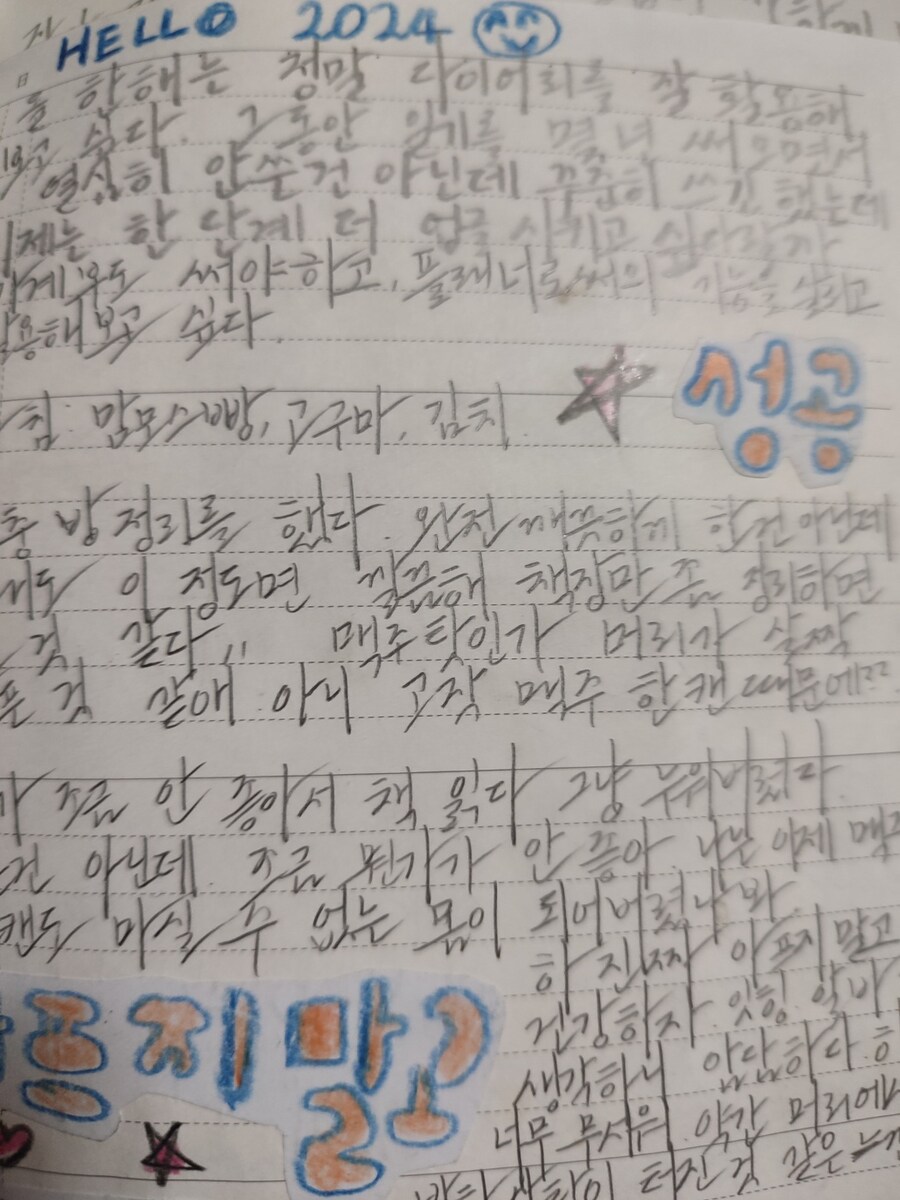 HELLO 2024
올 한해는 정말 다이어리를 잘 활용해
보고 싶다. 그동안 일기를 몇 년 써오면서
열심히 안쓴건 아닌데 꾸준히 쓰긴 했는데
이제는 한 단계 더 업글 시키고 싶다랄까
가계부도 써야하고, 플래너로써의 기능을 살리고
활용해보고 싶다.
침: 맘모스빵, 고구마, 김치.
성공
충 방정리를 했다. 완전 깨끗하게 한건아닌데
이 정도면 깔끔해 책장만 좀 정리하면
것 같다,, 맥주탓인가 머리가 살짝
픈 것 같애. 아니 고작 맥주 한캔 때문에??
가 조금 안 좋아서 책 읽다 그냥 누워버렸다
건 아닌데. 조금 뭔가가 안 좋아. 나는 이제 맥주
캔도 마실 수 없는 몸이 되어버렸나 봐
하 진짜 아프지 말고
건강하자 잇힝. 알바
생각하니 암담하다. 하
너무 무서워. 약간 머리에
터진것 같은 느낌
프지말고